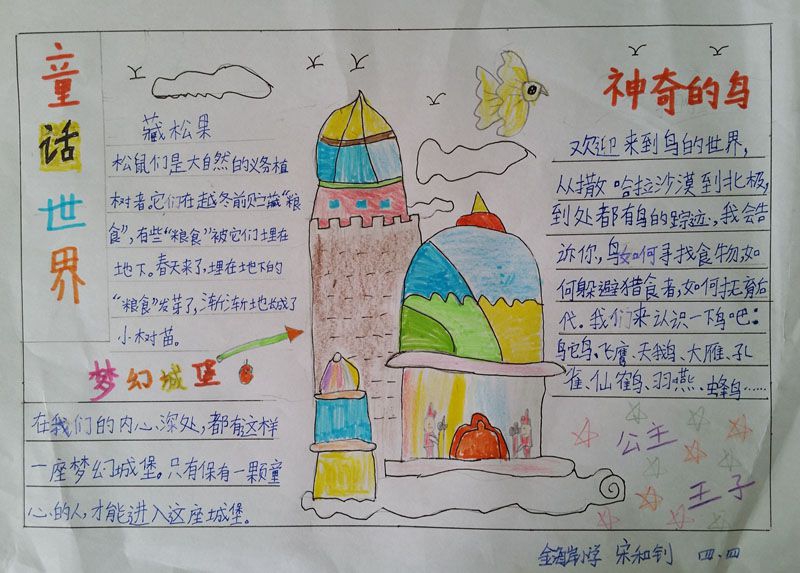 童话世界
藏松果
松鼠们是大自然的义务植
树者。它们在越冬前贮藏“粮
食”，有些“粮食”被它们埋在
地下。春天来了，埋在地下的
“粮食”发芽了，渐渐地长成了
小树苗。
梦幻城堡
在我们的内心深处，都有这样
一座梦幻城堡。只有保有一颗童
心的人，才能进入这座城堡。
神奇的鸟
欢迎来到鸟的世界，
从撒哈拉沙漠到北极，
到处都有鸟的踪迹，我会告
诉你，鸟如何寻找食物，如
何躲避猎食者，如何抚育后
代。我们来认识一下鸟吧：
鸵鸟、飞鹰、天鹅、大雁、孔
雀、仙鹤、羽燕、蜂鸟……
公主
王子
金海岸小学 宋和钊 四.四